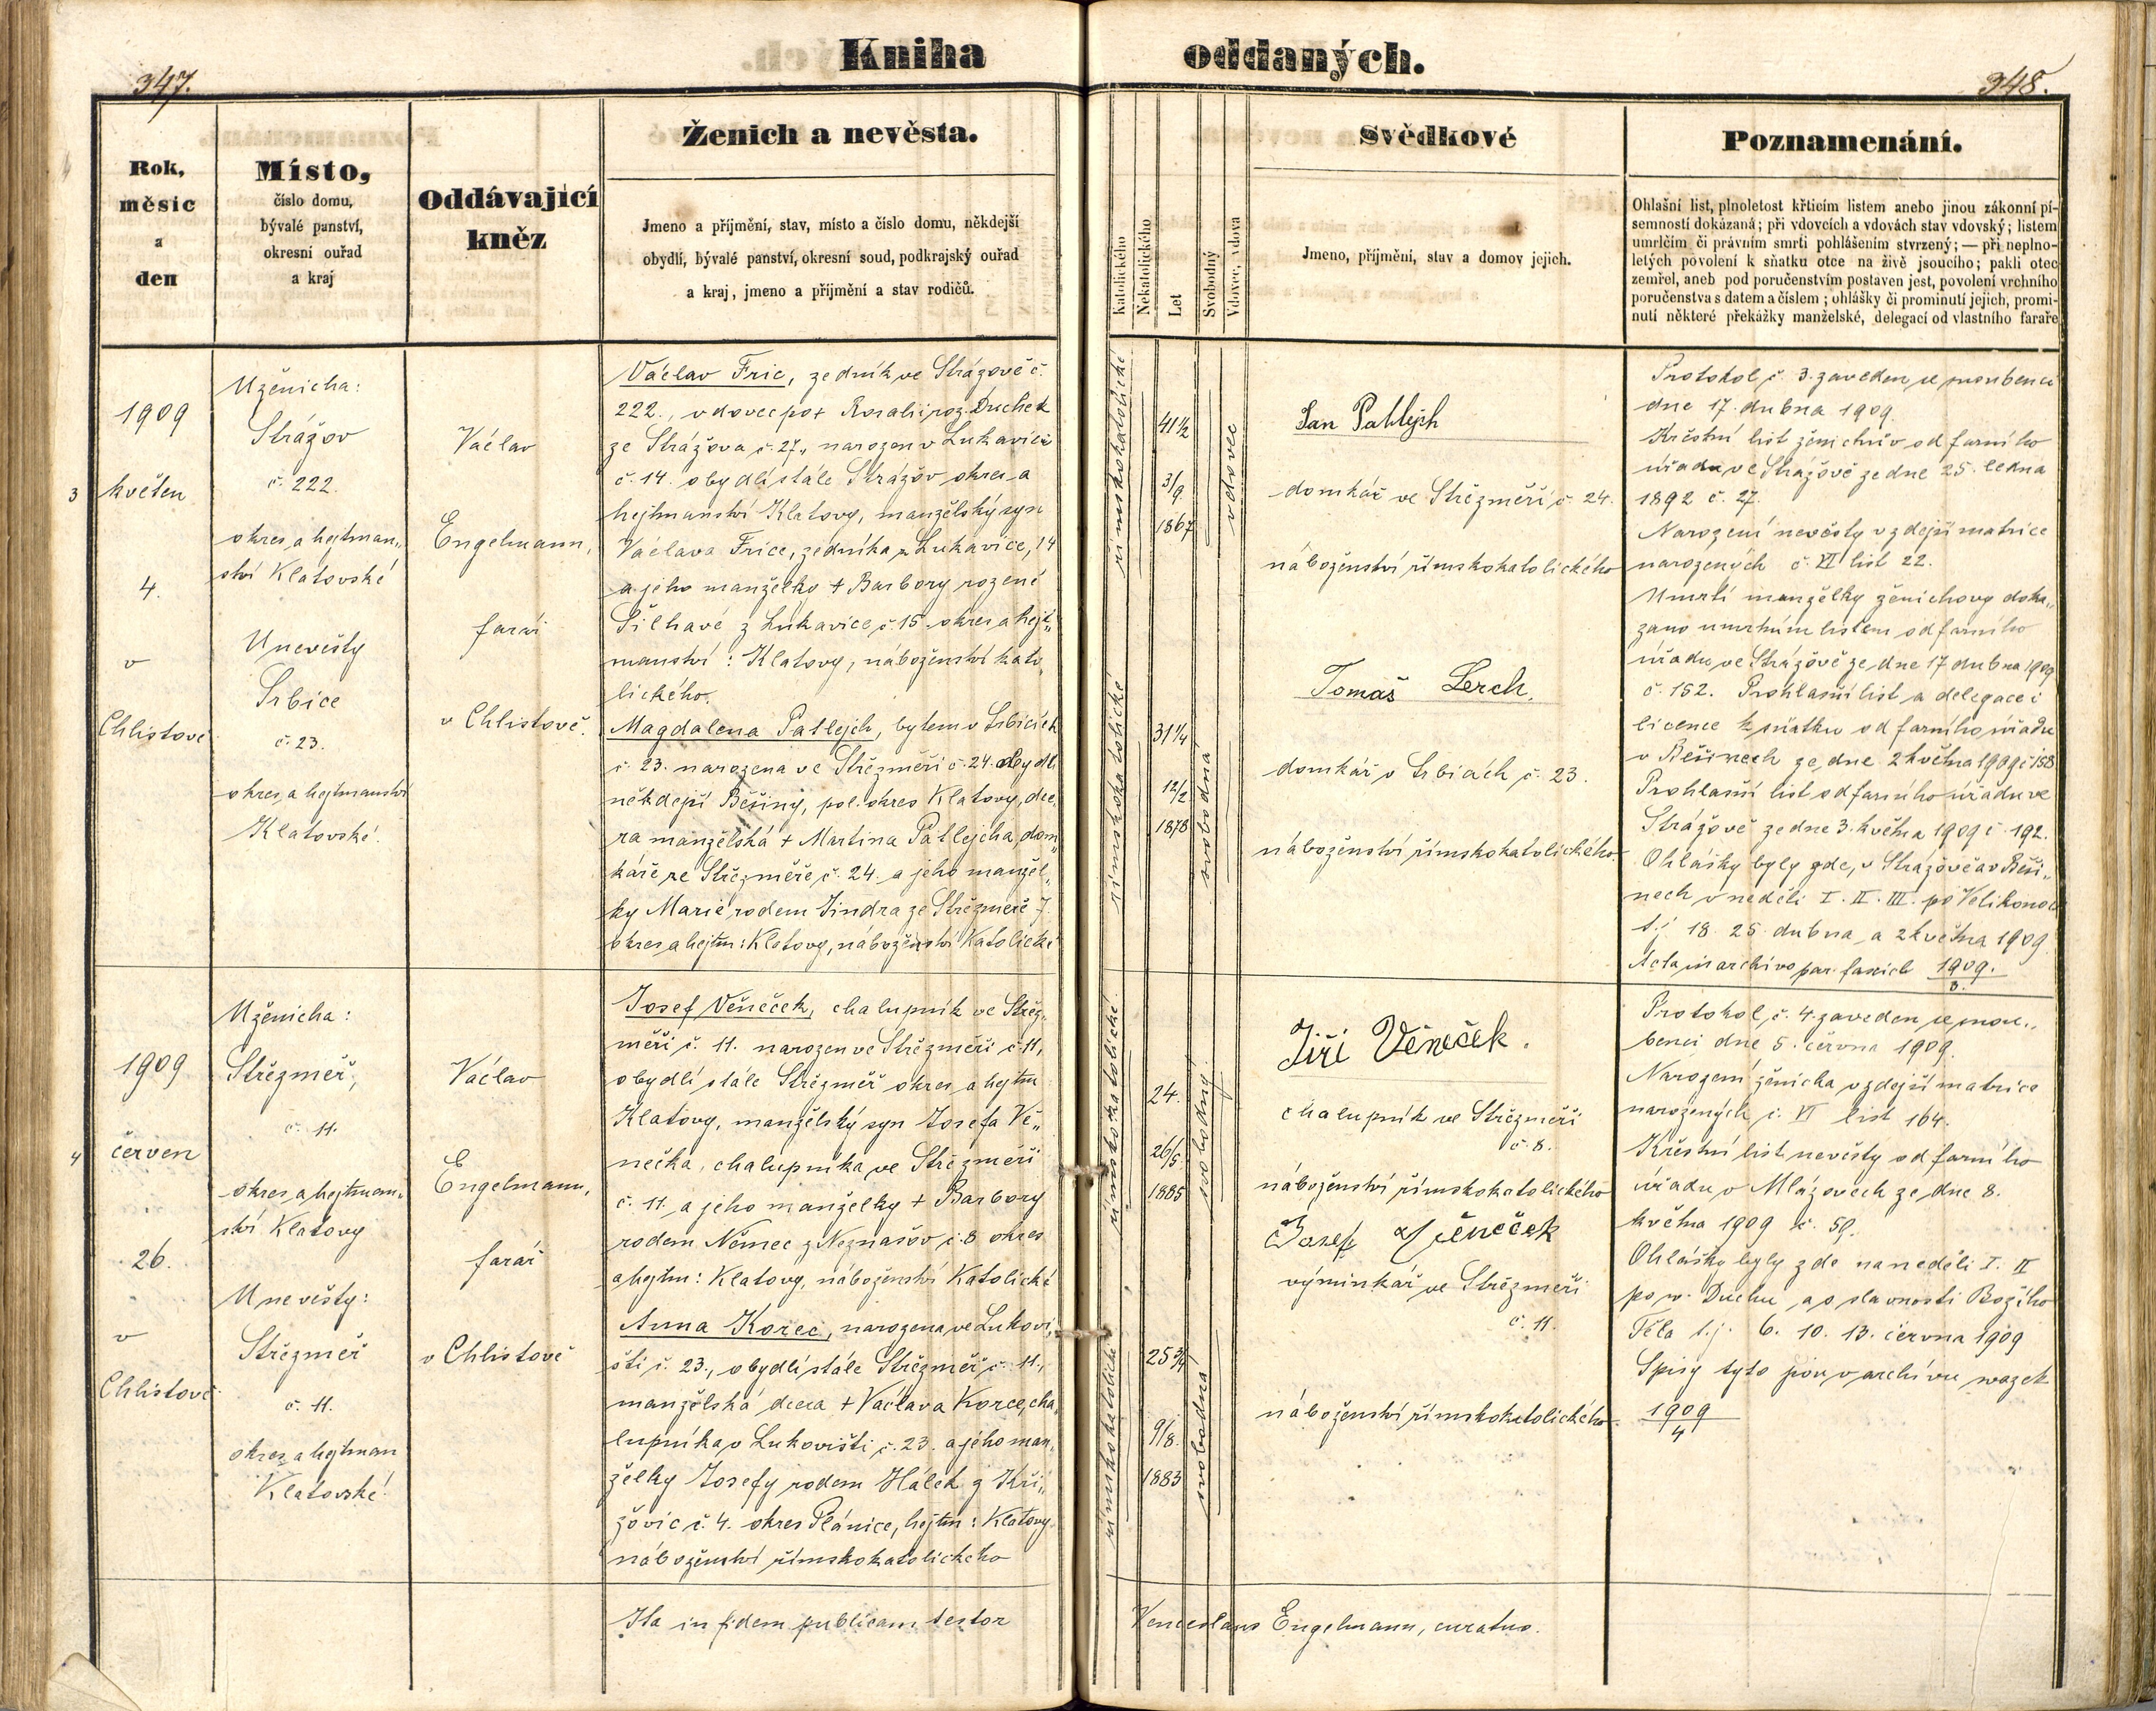 Kniha oddaných.
347.
348.
Rok,
měsíc
a
den
Místo,
číslo domu,
bývalé panství,
okresní ouřad
a kraj
Oddávající
kněz
Ženich a nevěsta.
Jmeno a příjmění, stav, místo a číslo domu, někdejší
obydlí, bývalé panství, okresní soud, podkrajský ouřad
a kraj, jmeno a příjmění a stav rodičů.
Katolického
Nekatolického
Let
Svobodný
Vdovec, vdova
Svědkové
Jmeno, příjmění, stav a domov jejich.
Poznamenání.
Ohlašní list, plnoletost křticím listem anebo jinou zákonní pí-
semností dokázaná; při vdovcích a vdovách stav vdovský; listem
umrlčím či právním smrti pohlášením stvrzený; — při neplno-
letých povolení k sňatku otce na živě jsoucího; pakli otec
zemřel, aneb pod poručenstvím postaven jest, povolení vrchního
poručenstva s datem a číslem; ohlášky či prominutí jejich, promi-
nutí některé překážky manželské, delegací od vlastního faráře
3
1909
květen
4.
v
Chlistově
U ženicha:
Strážov
č. 222.
okres a hejtman„
ství Klatovské
U nevěsty
Srbice
č. 23.
okres a hejtmanství
Klatovské.
Václav
Engelmann,
farář
v Chlistově.
Václav Fric, zedník ve Strážově č.
222., vdovec po + Rosalii roz. Duchek
ze Strážova č. 27., narozen v Lukavici
č. 14. obydlí stále Strážov okres a
hejtmanství Klatovy, manželský syn
Václava Frice, zedníka z Lukavice, 14
a jeho manželky + Barbory rozené
Šilhavé z Lukavice č. 15. okres a hejt„
manství: Klatovy, náboženství kato„
lického.
Magdalena Patlejch, bytem v Srbicích
č. 23. narozena ve Střezměři č. 24. obydlí
někdejší Běšiny, pol. okres Klatovy, dce„
ra manželská + Martina Patlejcha, dom„
káře ze Střezměře č. 24. a jeho manžel„
ky Marie rodem Jindra ze Střezměře 7.
okres a hejtm: Klatovy, náboženství Katolické
římskokatolické
41½
3/9
1867
vdovec
římskokatolické
31¼
12/2
1878
svobodná
Jan Patlejch
domkář ve Střezměři č. 24.
náboženství římskokatolického
Tomáš Lerch.
domkář v Srbicích č. 23.
náboženství římskokatolického.
Protokol č. 3. zaveden se snoubenci
dne 17. dubna 1909.
Křestní list ženichův od farního
úřadu ve Strážově ze dne 25. ledna
1892 č. 27.
Narození nevěsty v zdejší matrice
narozených č. VI list 22.
Umrtí manželky ženichovy doká„
záno umrtním listem od farního
úřadu ve Strážově ze dne 17 dubna 1909
č. 152. Prohlašní list a delegace i
licence k sňatku od farního úřadu
v Běšinech ze dne 2 května 1909 č 158
Prohlašní list od farního úřadu ve
Strážově ze dne 3. května 1909 č. 192.
Ohlášky byly zde, v Strážově a v Běši„
nech v neděli I. II. III. po Velikonoci
t.j. 18. 25. dubna a 2 května 1909.
Acta in archivo par. fascicl 1909.
3.
4
1909
červen
26.
v
Chlistově
U ženicha:
Střezměř,
č. 11.
okres a hejtman„
ství Klatovy
U nevěsty:
Střezměř
č. 11.
okres a hejtman
Klatovské.
Václav
Engelmann,
farář
v Chlistově
Josef Věneček, chalupník ve Střez„
měři č. 11. narozen ve Střezměři č. 11,
obydlí stále Střezměř okres a hejtm
Klatovy, manželský syn Josefa Vě„
nečka, chalupníka ve Střezměři
č. 11. a jeho manželky + Barbory
rodem Němec z Neznašov č. 8 okres
a hejtm: Klatovy, náboženství Katolické
Anna Korec, narozena ve Lukovi„
šti č. 23., obydlí stále Střezměř č. 11.,
manželská dcera + Václava Korce, cha„
lupníka v Lukovišti č. 23. a jeho man„
želky Josefy rodem Hálek z Kři„
žovic č. 4. okres Plánice, hejtm: Klatovy.
náboženství římskokatolického
římskokatolické
24.
26/5
1885
svobodný
římskokatolické
25¾
9/8.
1883
svobodná
Jiří Věneček.
chalupník ve Střezměři
č. 8.
náboženství římskokatolického
Josef Věneček
výminkář ve Střezměři
č. 11.
náboženství římskokatolického
Protokol č. 4. zaveden se snou„
benci dne 5. června 1909.
Narození ženicha v zdejší matrice
narozených č. VI list 164.
Křestní list nevěsty od farního
úřadu v Mlázovech ze dne 8.
května 1909 č. 59.
Ohlášky byly zde na neděli I. II
po sv. Duchu, a o slavnosti Božího
Těla t.j. 6. 10. 13. června 1909
Spisy tyto jsou v archivu svazek
1909
4
Ita in fidem publicam testor
Venceslaus Engelmann, curatus.